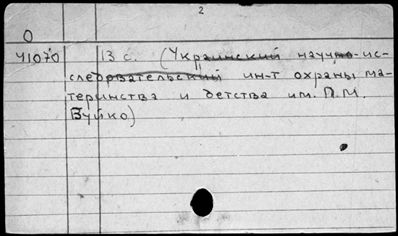 2
О
41070 13 с. (Украинский научно-ис-
следовательский ин-т охраны ма-
теринства и детства им. П.М.
Буйко)